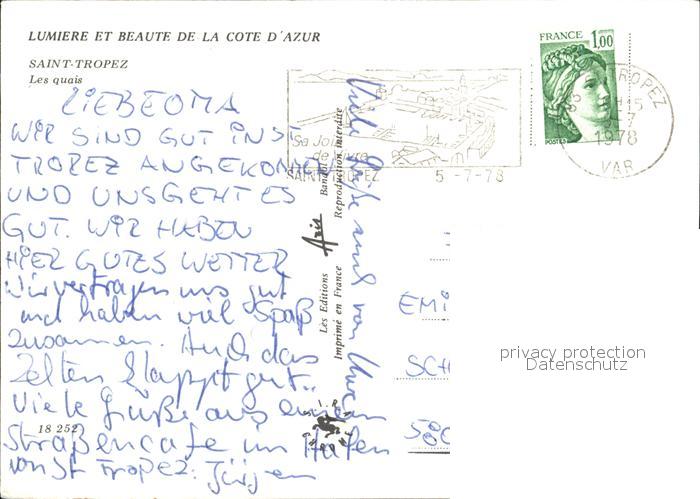 LUMIERE ET BEAUTE DE LA COTE D'AZUR
SAINT-TROPEZ
Les quais
LIEBE OMA
WIR SIND GUT IN ST
TROPEZ ANGEKOMMEN
UND UNS GEHT ES
GUT. WIR HABEN
HIER GUTES WETTER
Wir vertragen uns gut
und haben viel Spaß
zusammen. Auch das
Zelten klappt gut..
Viele Grüße aus einem
Straßencafe im Hafen
von St Tropez. Jürgen
18 252
Viele Grüße auch von Uwe
Les Editions Aris
Imprimé en France
Reproduction interdite
Sa Joie
de Vivre
SAINT-TROPEZ 5 -7-78
FRANCE
1,00
POSTES
TROPEZ
1978
VAR
EMI
SCH
580
privacy protection
Datenschutz